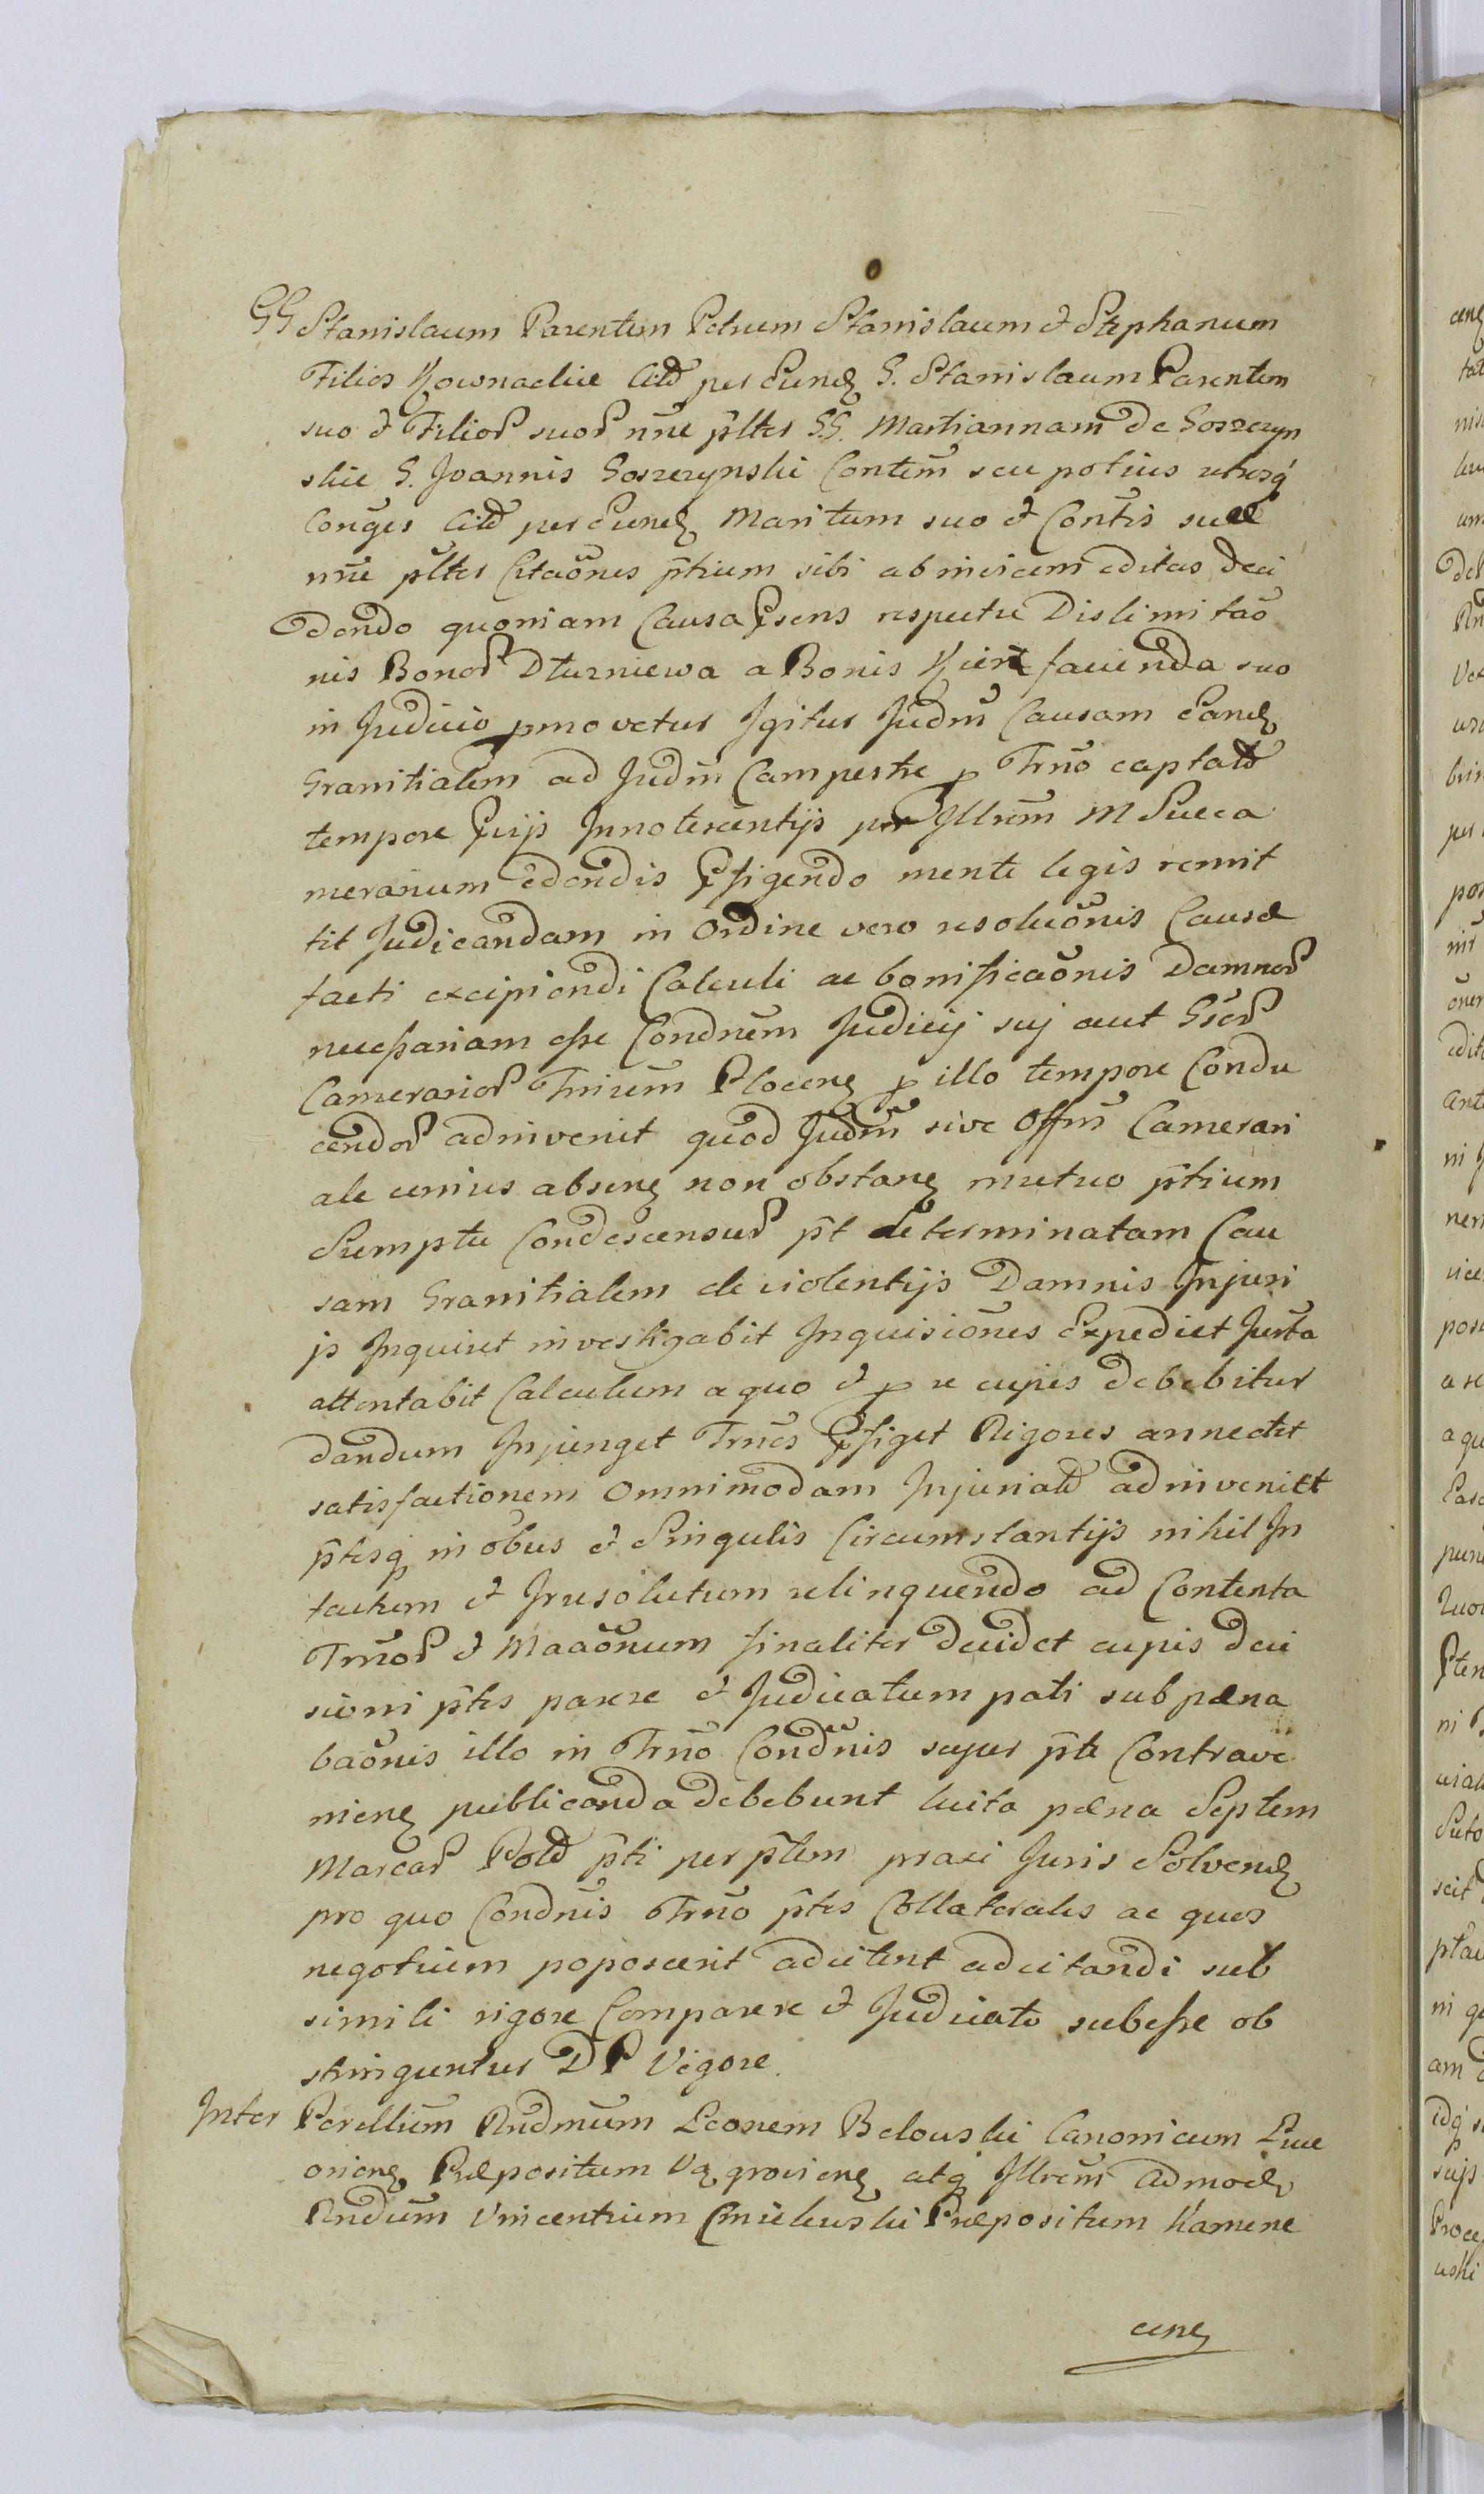 GG Stanislaum Parentem Petrum Stanislaum & Stephanum
Filios Kownackie Citd per Eund G. Stanislaum Parentem
suo & Filior suor nñe pltes GG. Martiannam de Goszczyn
skie G. Joannis Goszczynski Contem seu potius utrosq
Conges Citd per Eund Maritum suo & Contis suæ
nñe pltes Citaões ptium sibi ab invicem editas Deci
dendo quoniam Causa Psens respectu Dislimitaõ
nis Bonor Dturniewa a Bonis facienda suo
in Judicio pmovetur Igitur Judm Causam Eand
Granitialem ad Judm Campestre p Trno captatd
tempore Pvijs Innotescentijs per Illrem M Succa
merarium edendis Pfigendo mente legis remit
tit Judicandam in Ordine vero resoluõnis Causæ
facti excipiendi Calculi ac bonificaõnis Damnor
necessariam esse Condnem Judicij sui aut Gsor
Camerarior Trium Plocen p illo tempore Condu
cendor adinvenit quod Judm sive Offm Camerari
ale unius absen non obstan mutuo ptium
Sumptu Condescensur pt determinatam Cau
sam Granitialem de violentijs Damnis Injuri
js Inquiret investigabit Inquisiones Expediet Jurta
attentabit Calculum a quo & p re cujus debebitur
dandum Injunget Trnos Pfiget Rigores annectet
satisfactionem Omnimodam Injuriatd adinveniet
ptesq in obus & Singulis Circumstantijs nihil In
tactum & Irresolutum relinquendo ad Contenta
Trnor & Maaõnum finaliter decidet cujus deci
sioni ptes parere & Judicatum pati sub pæna
baõnis illo in Trno Condnis super pte Contrave
nien publicanda debebunt luita pæna Septem
Marcar Pold pti per ptem praxi Juris Solvend
pro quo Condnis Trno ptes Collaterales ac quos
negotium poposcerit adcitent adcitandi sub
simili rigore Comparere & Judicato subesse ob
stringuntur D P Vigore.
Inter Perillum Rndmum Leonem Belouski Canonicum Luce
orien Præpositum Vagrovien atq Illrem Admod
Rndum Vincentium Præpositum Kamene
cen